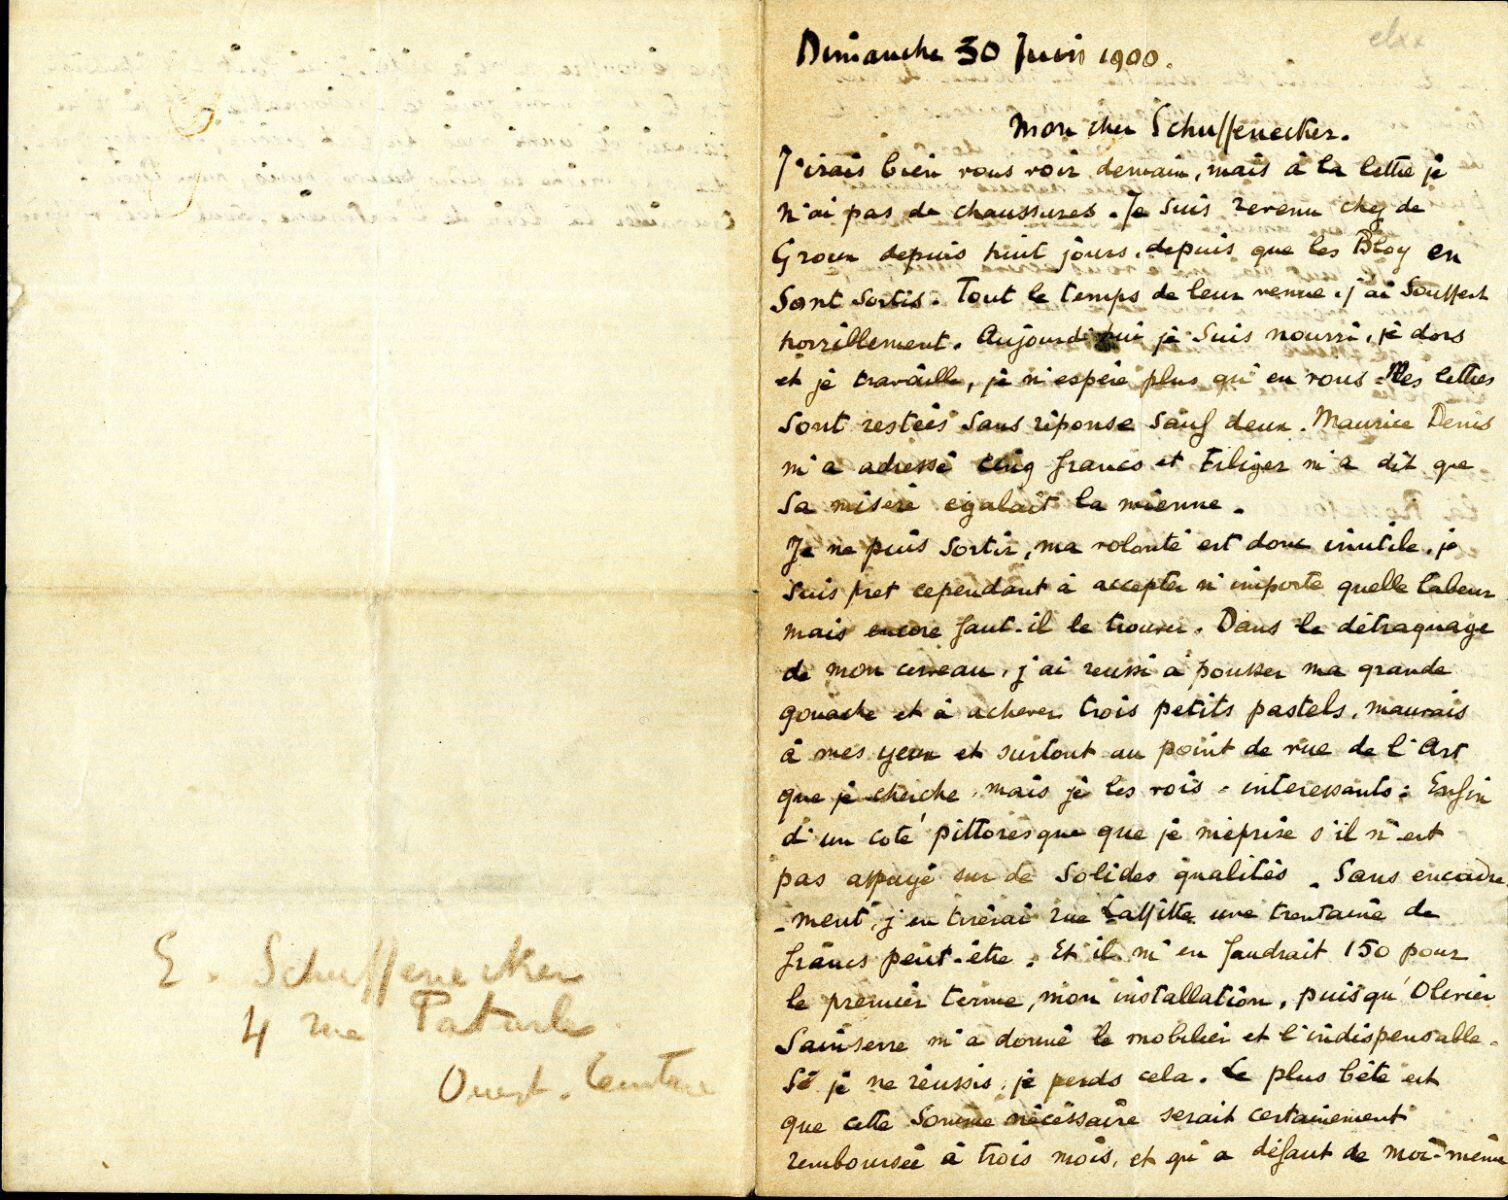 Dimanche 30 Juin 1900.
Mon cher Schuffenecker.
J'irais bien vous voir demain, mais à la lettre je
n'ai pas de chaussures. Je suis revenu chez de
Groux depuis huit jours, depuis que les Bloy en
sont sortis. Tout le temps de leur venue, j'ai souffert
horriblement. Aujourd'hui je suis nourri, je dors
et je travaille, je n'espère plus qu'en vous. Mes lettres
sont restées sans réponse sauf deux. Maurice Denis
m'a adressé cinq francs et Filiger m'a dit que
sa misère égalait la mienne.
Je ne puis sortir, ma volonté est donc inutile, je
suis pret cependant à accepter n'importe quelle labeur
mais encore faut-il le trouver. Dans le détraquage
de mon cerveau, j'ai reussi à pousser ma grande
gouache et à achever trois petits pastels, mauvais
à mes yeux et surtout au point de vue de l'Art
que je cherche, mais je les vois - interessants : Enfin
d'un coté pittoresque que je méprise s'il n'est
pas appuyé sur de solides qualités. Sans encadre
-ment, j'en tirerai rue Laffitte une trentaine de
francs peut-être. Et il m'en faudrait 150 pour
le premier terme, mon installation, puisqu'Olivier
Sainsere m'a donné le mobilier et l'indispensable.
Si je ne réussis, je perds cela. Le plus bête est
que cette somme nécessaire serait certainement
remboursée à trois mois, et qu'a défaut de moi-même
E. Schuffenecker
4 rue Paturle
Ouest. Ceinture